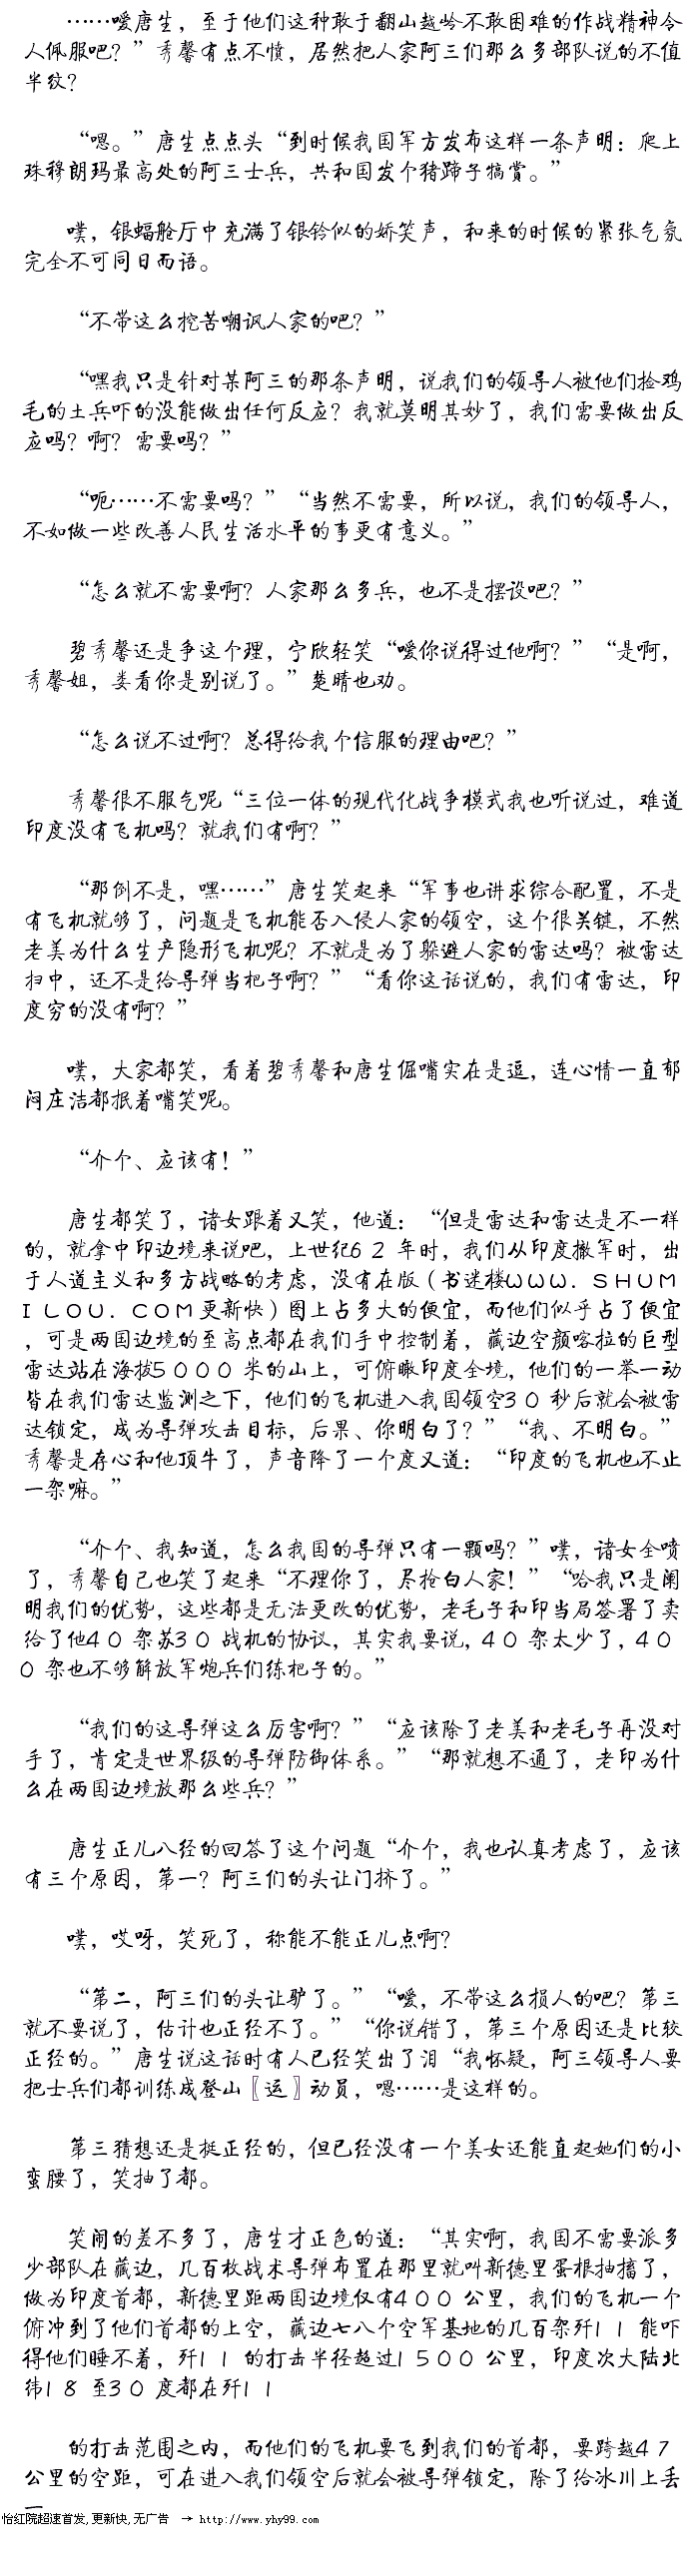 ……嗳唐生，至于他们这种敢于翻山越岭不敢困难的作战精神令
人佩服吧？”秀馨有点不愤，居然把人家阿三们那么多部队说的不值
半纹？
“嗯。”唐生点点头“到时候我国军方发布这样一条声明：爬上
珠穆朗玛最高处的阿三士兵，共和国发个猪蹄子犒赏。”
噗，银蝠舱厅中充满了银铃似的娇笑声，和来的时候的紧张气氛
完全不可同日而语。
“不带这么挖苦嘲讽人家的吧？”
“嘿我只是针对某阿三的那条声明，说我们的领导人被他们捡鸡
毛的土兵吓的没能做出任何反应？我就莫明其妙了，我们需要做出反
应吗？啊？需要吗？”
“呃……不需要吗？”“当然不需要，所以说，我们的领导人，
不如做一些改善人民生活水平的事更有意义。”
“怎么就不需要啊？人家那么多兵，也不是摆设吧？”
碧秀馨还是争这个理，宁欣轻笑“嗳你说得过他啊？”“是啊，
秀馨姐，娄看你是别说了。”楚晴也劝。
“怎么说不过啊？总得给我个信服的理由吧？”
秀馨很不服气呢“三位一体的现代化战争模式我也听说过，难道
印度没有飞机吗？就我们有啊？”
“那倒不是，嘿……”唐生笑起来“军事也讲求综合配置，不是
有飞机就够了，问题是飞机能否入侵人家的领空，这个很关键，不然
老美为什么生产隐形飞机呢？不就是为了躲避人家的雷达吗？被雷达
扫中，还不是给导弹当杷子啊？”“看你这话说的，我们有雷达，印
度穷的没有啊？”
噗，大家都笑，看着碧秀馨和唐生倔嘴实在是逗，连心情一直郁
闷庄洁都抿着嘴笑呢。
“介个、应该有！”
唐生都笑了，诸女跟着又笑，他道：“但是雷达和雷达是不一样
的，就拿中印边境来说吧，上世纪６２年时，我们从印度撤军时，出
于人道主义和多方战略的考虑，没有在版（书迷楼ＷＷＷ．ＳＨＵＭ
ＩＬＯＵ．ＣＯＭ更新快）图上占多大的便宜，而他们似乎占了便宜
，可是两国边境的至高点都在我们手中控制着，藏边空颜喀拉的巨型
雷达站在海拔５０００米的山上，可俯瞰印度全境，他们的一举一动
皆在我们雷达监测之下，他们的飞机进入我国领空３０秒后就会被雷
达锁定，成为导弹攻击目标，后果、你明白了？”“我、不明白。”
秀馨是存心和他顶牛了，声音降了一个度又道：“印度的飞机也不止
一架嘛。”
“介个、我知道，怎么我国的导弹只有一颗吗？”噗，诸女全喷
了，秀馨自己也笑了起来“不理你了，尽抢白人家！”“哈我只是阐
明我们的优势，这些都是无法更改的优势，老毛子和印当局签署了卖
给了他４０架苏３０战机的协议，其实我要说，４０架太少了，４０
０架也不够解放军炮兵们练杷子的。”
“我们的这导弹这么厉害啊？”“应该除了老美和老毛子再没对
手了，肯定是世界级的导弹防御体系。”“那就想不通了，老印为什
么在两国边境放那么些兵？”
唐生正儿八径的回答了这个问题“介个，我也认真考虑了，应该
有三个原因，第一？阿三们的头让门挤了。”
噗，哎呀，笑死了，称能不能正儿点啊？
“第二，阿三们的头让驴了。”“嗳，不带这么损人的吧？第三
就不要说了，估计也正经不了。”“你说错了，第三个原因还是比较
正经的。”唐生说这话时有人已经笑出了泪“我怀疑，阿三领导人要
把士兵们都训练成登山〖运〗动员，嗯……是这样的。
第三猜想还是挺正经的，但已经没有一个美女还能直起她们的小
蛮腰了，笑抽了都。
笑闹的差不多了，唐生才正色的道：“其实啊，我国不需要派多
少部队在藏边，几百枚战术导弹布置在那里就叫新德里蛋根抽搐了，
做为印度首都，新德里距两国边境仅有４００公里，我们的飞机一个
俯冲到了他们首都的上空，藏边七八个空军基地的几百架歼１１能吓
得他们睡不着，歼１１的打击半径超过１５００公里，印度次大陆北
纬１８至３０度都在歼１１
的打击范围之内，而他们的飞机要飞到我们的首都，要跨越４７
公里的空距，可在进入我们领空后就会被导弹锁定，除了给冰川上丢
一
怡红院超速首发,更新快,无广告 → http://www.yhy99.com